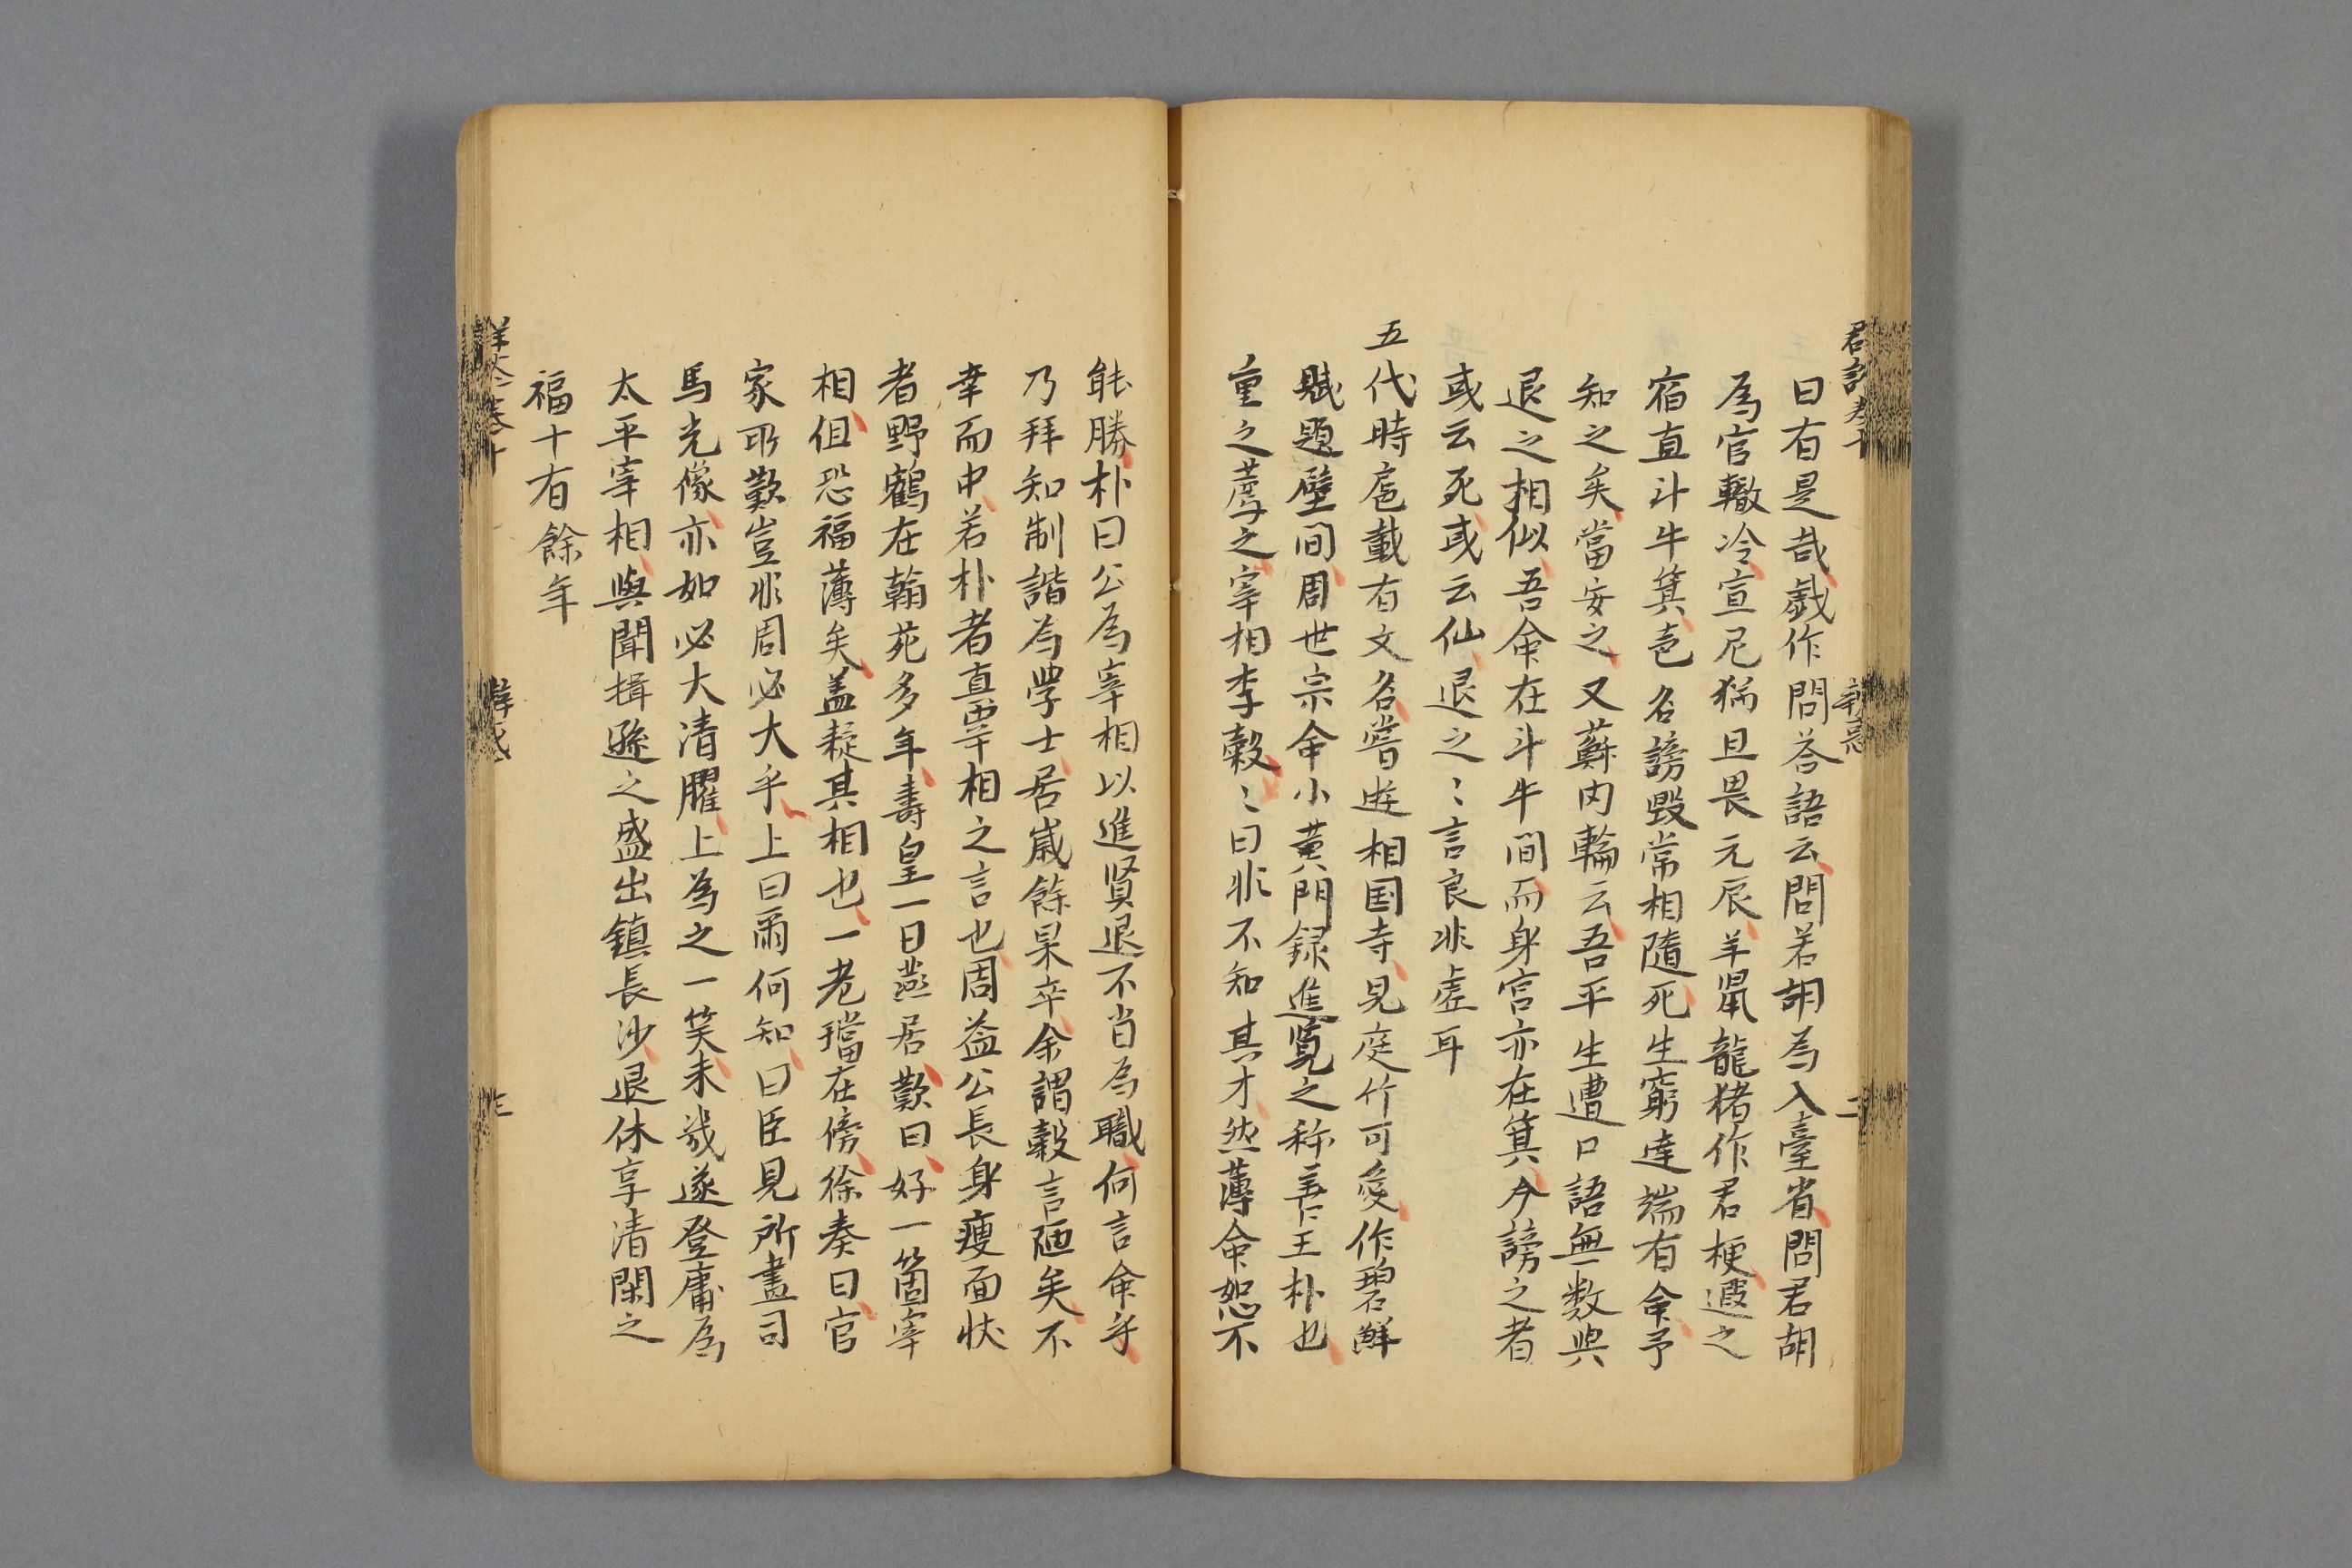 曰有是哉戯作問荅語云問若胡為入臺省問君胡
為官轍冷宣尼猶且畏元辰羊鼠龍猪作君梗遐之
宿直斗牛箕㐌名謗毀常相隨死生窮達端有命予
知之矣當安之又蘇内輪云吾平生遭口語無数與
退之相似吾命在斗牛間而身宮亦在箕今謗之者
或云死或云仙退之〻言良非虛耳
五代時扈載有文名嘗逰相国寺見庭竹可愛作碧鮮
賦題壁間周世宗命小黄門録進覧之称善王朴也
重之荐之宰相李穀〻曰非不知其才然薄命恕不
能勝朴曰公為宰相以進賢退不肖為職何言命乎
乃拜知制誥為學士居嵗餘果卒余謂穀言陋矣不
幸而中若朴者真宰相之言也周益公長身瘦面狀
者野鶴在翰苑多年壽皇一日燕居歎曰好一箇宰
相但恐福薄矣盖疑其相也一老璫在傍徐奏曰官
家所歎豈非周必大乎上曰爾何知曰臣見所畫司
馬光像亦如必大清臞上為之一笑未幾遂登庸為
太平宰相與聞揖遜之盛出鎮長沙退休享清閑之
福十有餘年